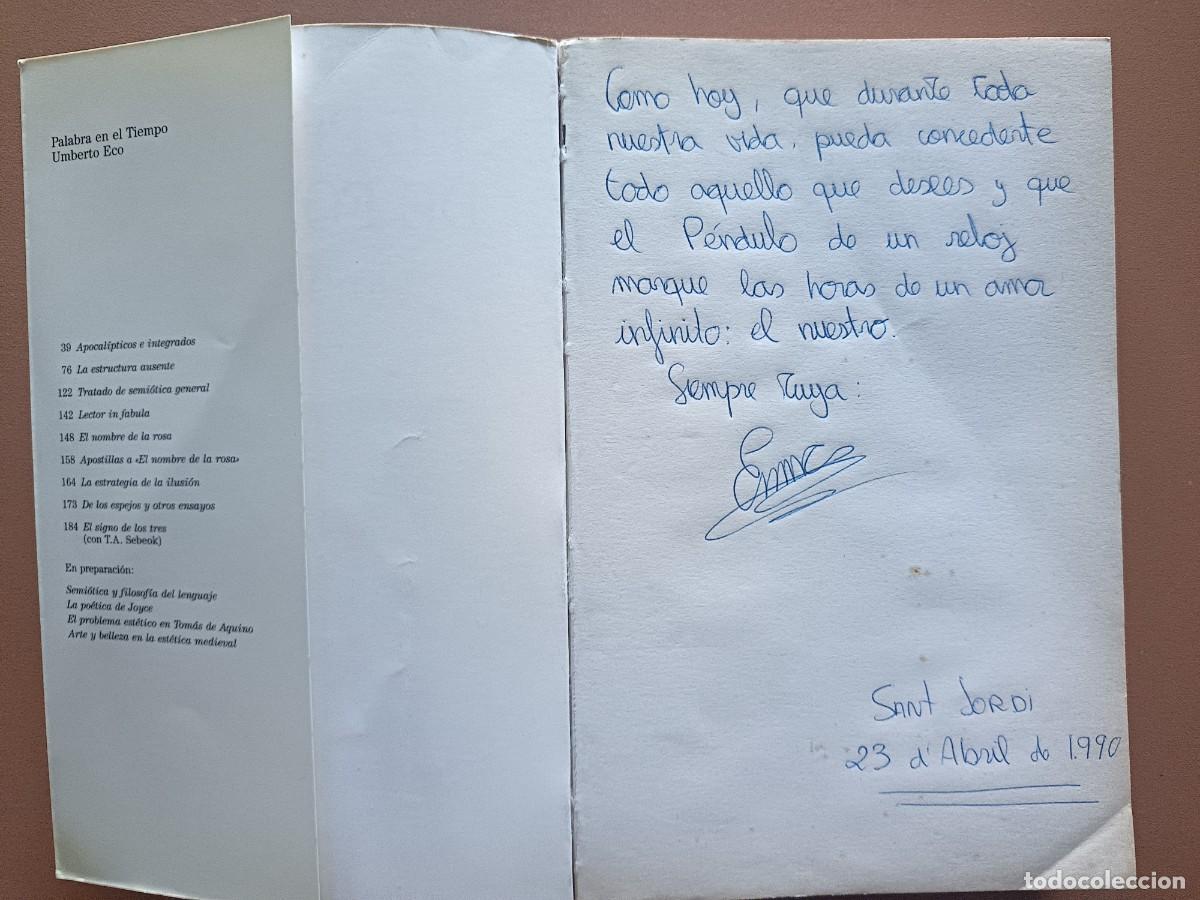 Palabra en el Tiempo
Umberto Eco
39 Apocalípticos e integrados
76 La estructura ausente
122 Tratado de semiótica general
142 Lector in fabula
148 El nombre de la rosa
158 Apostillas a «El nombre de la rosa»
164 La estrategia de la ilusión
173 De los espejos y otros ensayos
184 El signo de los tres
(con T.A. Sebeok)
En preparación:
Semiótica y filosofía del lenguaje
La poética de Joyce
El problema estético en Tomás de Aquino
Arte y belleza en la estética medieval
Como hoy, que durante toda
nuestra vida, pueda concederte
todo aquello que desees y que
el Péndulo de un reloj
marque las horas de un amor
infinito: el nuestro.
Siempre tuya:
SANT JORDI
23 d'Abril de 1.990
todocoleccion